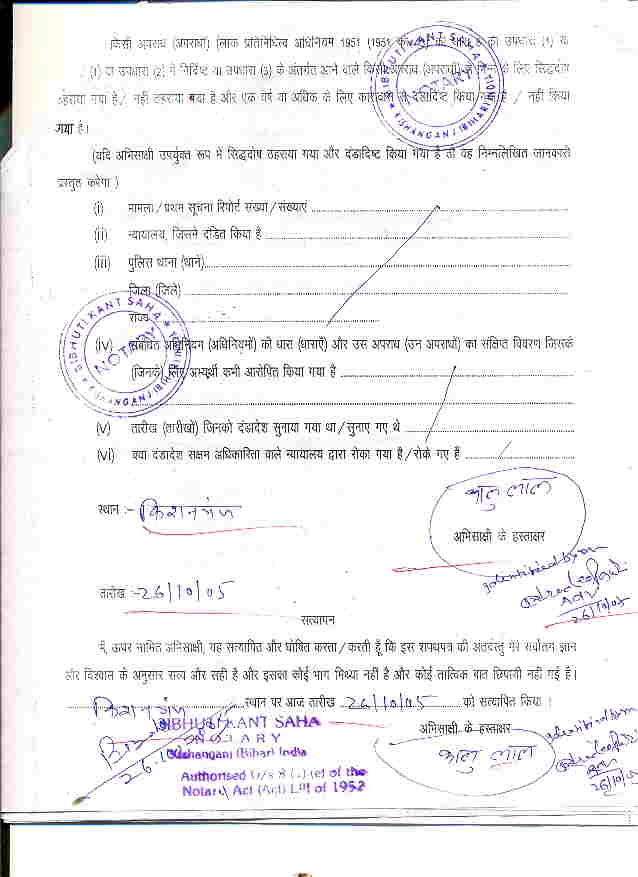 किसी अपराध (अपराधों) (लोक प्रतिनिधित्व अधिनियम 1951 (1951 का की धारा 8 की उपधारा (1) या
(1) या उपधारा (2) में निर्दिष्ट या उपधारा (3) के अंतर्गत आने वाले किसी अपराध (अपराधों) से भिन्न के लिए सिद्धदोष
ठहराया गया है / नहीं ठहराया गया है और एक वर्ष या अधिक के लिए कारावास से दंडादिष्ट किया गया है / नहीं किया
गया है।
BIBHUTI KANT SAHA
NOTARY
KISHANGANJ (BIHAR)
(यदि अभिसाक्षी उपर्युक्त रूप में सिद्धदोष ठहराया गया और दंडादिष्ट किया गया है तो वह निम्नलिखित जानकारी
प्रस्तुत करेगा )
(i) मामला / प्रथम सूचना रिपोर्ट संख्या / संख्याएं
(ii) न्यायालय, जिसने दंडित किया है
(iii) पुलिस थाना (थाने)
जिला (जिले)
राज्य
BIBHUTI KANT SAHA
NOTARY
KISHANGANJ (BIHAR)
(iv) संबंधित अधिनियम (अधिनियमों) की धारा (धाराएँ) और उस अपराध (उन अपराधों) का संक्षिप्त विवरण जिसके
(जिनके) लिए अभ्यर्थी कभी आरोपित किया गया है
(v) तारीख (तारीखों) जिनको दंडादेश सुनाया गया था / सुनाए गए थे
(vi) क्या दंडादेश सक्षम अधिकारिता वाले न्यायालय द्वारा रोका गया है / रोके गए हैं
कालु लाल
स्थान :- किशनगंज
अभिसाक्षी के हस्ताक्षर
Adv
26/10/05
तारीख :- 26/10/05
सत्यापन
मैं, ऊपर नामित अभिसाक्षी, यह सत्यापित और घोषित करता / करती हूँ कि इस शपथपत्र की अंतर्वस्तु मेरे सर्वोत्तम ज्ञान
और विश्वास के अनुसार सत्य और सही है और इसका कोई भाग मिथ्या नहीं है और कोई तात्विक बात छिपायी नहीं गई है।
किशनगंज स्थान पर आज तारीख 26/10/05 को सत्यापित किया ।
BIBHUTI KANT SAHA
NOTARY
Kishanganj (Bihar) India
Authorised U/s 8 (1) (e) of the
Notary Act (Act) LIII of 1952
अभिसाक्षी के हस्ताक्षर
कालु लाल
26/10/05